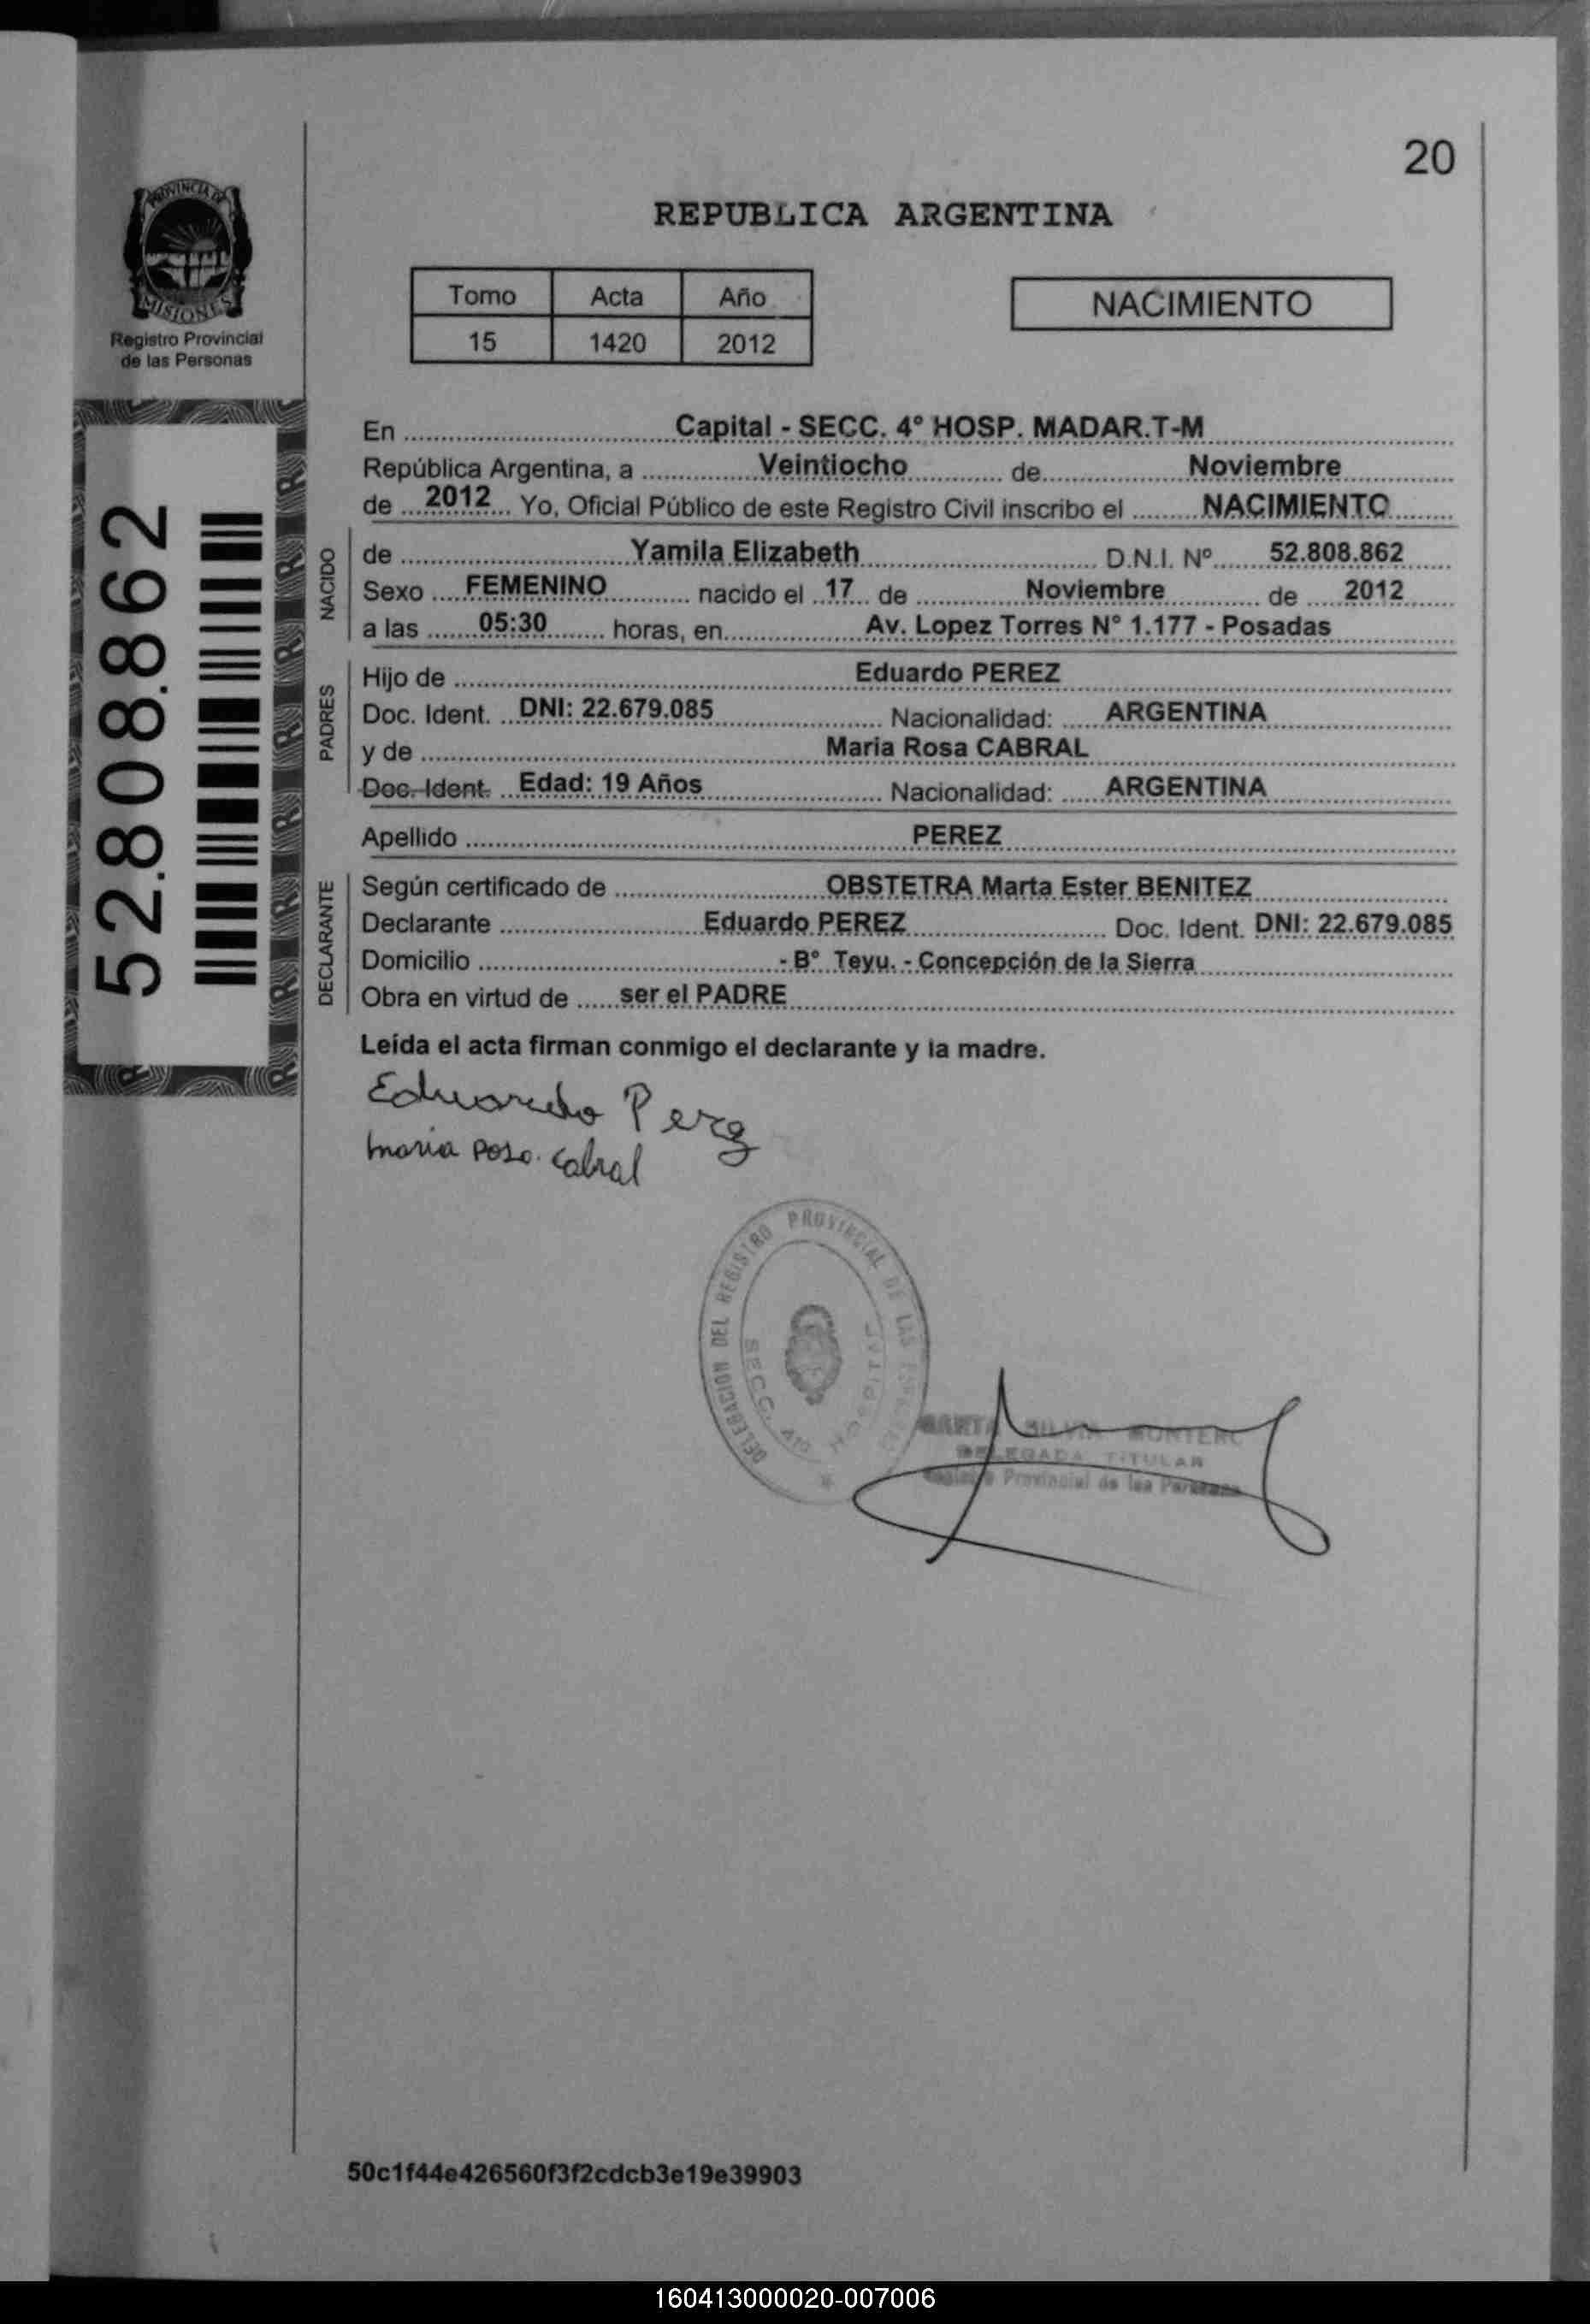 20
PROVINCIA DE
MISIONES
Registro Provincial
de las Personas
REPUBLICA ARGENTINA
Tomo Acta Año
15 1420 2012
NACIMIENTO
52.808.862
En Capital - SECC. 4° HOSP. MADAR.T-M
República Argentina, a Veintiocho de Noviembre
de 2012 Yo, Oficial Público de este Registro Civil inscribo el NACIMIENTO
NACIDO
de Yamila Elizabeth D.N.I. Nº 52.808.862
Sexo FEMENINO nacido el 17 de Noviembre de 2012
a las 05:30 horas, en Av. Lopez Torres N° 1.177 - Posadas
PADRES
Hijo de Eduardo PEREZ
Doc. Ident. DNI: 22.679.085 Nacionalidad: ARGENTINA
y de Maria Rosa CABRAL
Doc. Ident. Edad: 19 Años Nacionalidad: ARGENTINA
Apellido PEREZ
DECLARANTE
Según certificado de OBSTETRA Marta Ester BENITEZ
Declarante Eduardo PEREZ Doc. Ident. DNI: 22.679.085
Domicilio - B° Teyu. - Concepción de la Sierra
Obra en virtud de ser el PADRE
Leída el acta firman conmigo el declarante y la madre.
Eduardo Perez
maria Rosa. Cabral
DELEGACION DEL REGISTRO PROVINCIAL DE LAS
SECC. 4ta
SILVIA
DELEGADA TITULAR
Provincial de las Personas
50c1f44e426560f3f2cdcb3e19e39903
160413000020-007006